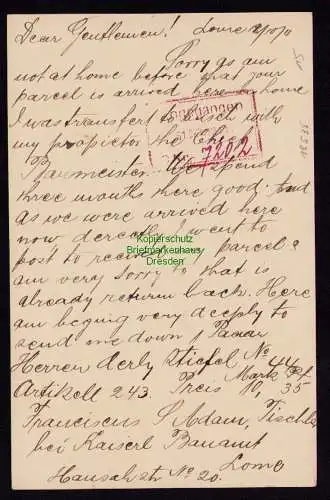 Dear Gentlemen! Lome
Sorry go am
not at home before that your
parcel is arrived here home
I was transfert to bush with
my propietor the Chief
Baumeister. We spend
three mouth here good, and
as we were arrived here
now derectly I went to
post to receive parcel
am very sorry to that is
already return back. Here
am beging very deeply to
send me down 1 Paar
Herren derby Stiefel No 44
Artikell 243. Preis Mark 10, Pf. 35
Franciscus S Adam, Tischler
bei Kaiserl Bauamt
No 20. Lome
Eingegangen
7202
Kopierschutz
Briefmarkenhaus
Dresden